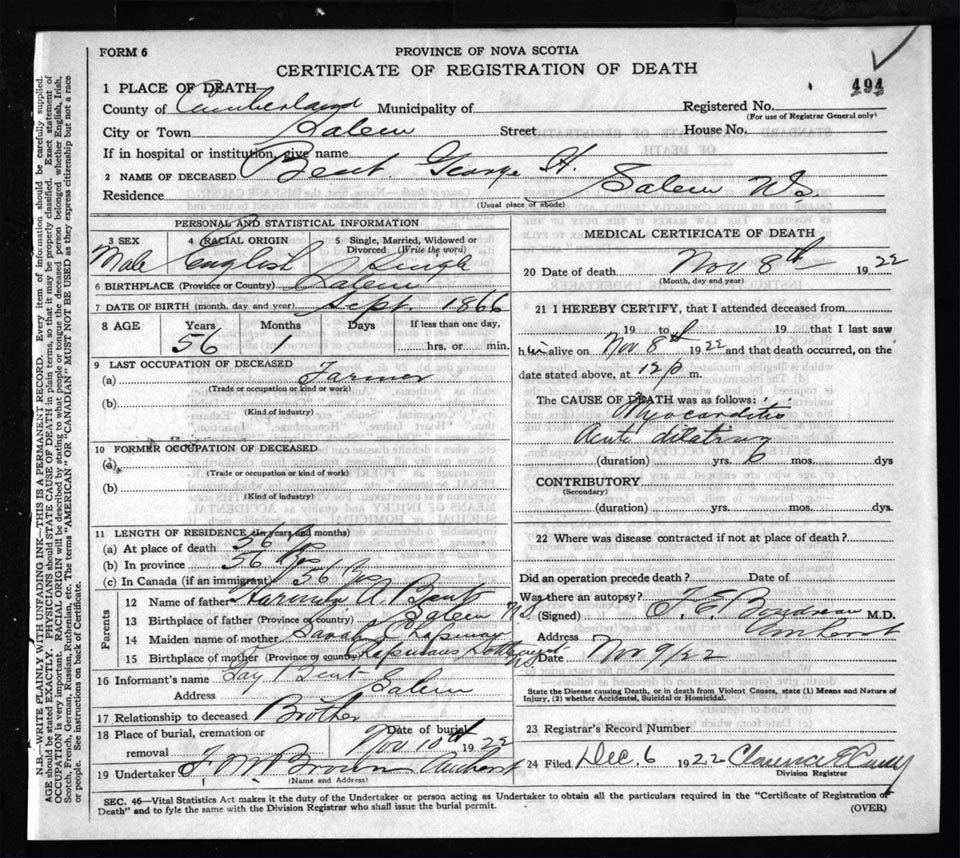 FORM 6
PROVINCE OF NOVA SCOTIA
CERTIFICATE OF REGISTRATION OF DEATH
494
1 PLACE OF DEATH
County of Cumberland Municipality of Registered No.
(For use of Registrar General only)
City or Town Salem Street House No.
If in hospital or institution, give name
2 NAME OF DECEASED Bent George H.
Residence Salem N.S.
(Usual place of abode)
PERSONAL AND STATISTICAL INFORMATION
3 SEX 4 RACIAL ORIGIN 5 Single, Married, Widowed or Divorced (Write the word)
Male English Single
6 BIRTHPLACE (Province or Country) Salem
7 DATE OF BIRTH (month, day and year) Sept. 1866
8 AGE Years Months Days If less than one day,
56 1 hrs. or min.
9 LAST OCCUPATION OF DECEASED
(a) Farmer
(Trade or occupation or kind of work)
(b)
(Kind of industry)
10 FORMER OCCUPATION OF DECEASED
(a)
(Trade or occupation or kind of work)
(b)
(Kind of industry)
11 LENGTH OF RESIDENCE (In years and months)
(a) At place of death 56 yrs
(b) In province 56 yrs
(c) In Canada (if an immigrant) 56 yrs
Parents
12 Name of father A. Bent
13 Birthplace of father (Province or country) Salem N.S.
14 Maiden name of mother Sarah Chapman
15 Birthplace of mother (Province or country) Chapmans Settlement N.S.
16 Informant's name Bent
Address Salem
17 Relationship to deceased Brother
18 Place of burial, cremation or removal Date of burial Nov 10th 1922
19 Undertaker F. M. Brown Amherst
(Name and Address)
MEDICAL CERTIFICATE OF DEATH
20 Date of death Nov 8th 1922
(Month, day and year)
21 I HEREBY CERTIFY, that I attended deceased from
19 to 19 that I last saw
him alive on Nov 8th 1922 and that death occurred, on the
date stated above, at 12 p m.
The CAUSE OF DEATH was as follows:
Myocarditis
Acute
(duration) yrs. 6 mos. dys
CONTRIBUTORY
(Secondary)
(duration) yrs. mos. dys
22 Where was disease contracted if not at place of death?
Did an operation precede death? Date of
Was there an autopsy?
(Signed) M.D.
Address Amherst
Date Nov 9/22
State the Disease causing Death, or in death from Violent Causes, state (1) Means and Nature of
Injury, (2) whether Accidental, Suicidal or Homicidal.
23 Registrar's Record Number
24 Filed Dec. 6 1922 Clarence
Division Registrar
SEC. 46—Vital Statistics Act makes it the duty of the Undertaker or person acting as Undertaker to obtain all the particulars required in the "Certificate of Registration of
Death" and to fyle the same with the Division Registrar who shall issue the burial permit.
(OVER)
N.B.—WRITE PLAINLY WITH UNFADING INK—THIS IS A PERMANENT RECORD. Every item of information should be carefully supplied.
AGE should be stated EXACTLY. PHYSICIANS should STATE CAUSE OF DEATH in plain terms, so that it may be properly classified. Exact statement of
OCCUPATION is very important. RACIAL ORIGIN will be described by stating to what people or tongue the deceased person belonged whether English, Irish,
Scotch, French, German, Russian, Ruthenian, etc. The terms "AMERICAN" OR "CANADIAN" MUST NOT BE USED as they express citizenship but not a race
or people. See instructions on back of Certificate.